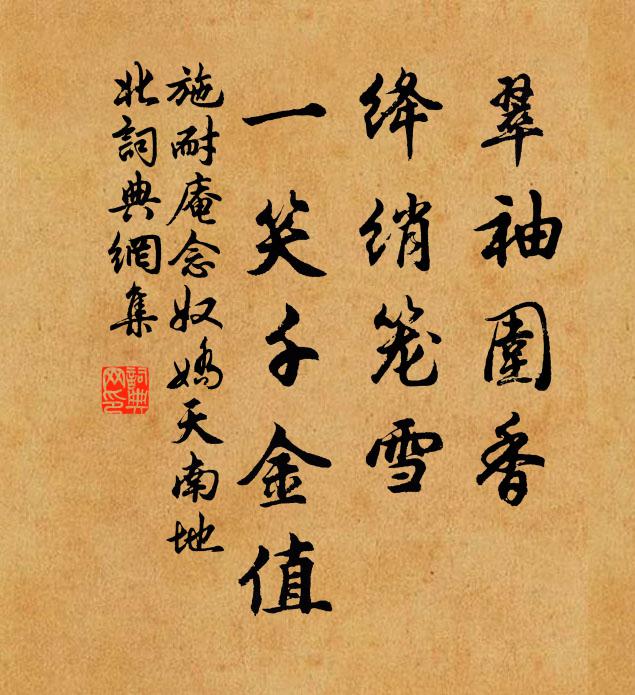 翠袖圍香
绛绡笼雪
一笑千金值
施耐庵念奴嬌天南地
北詞典網集
詞典
网印